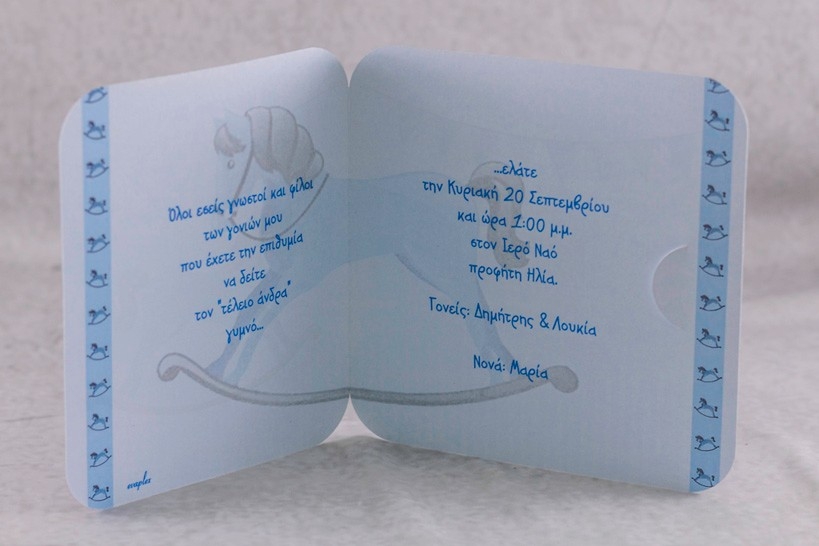 Όλοι εσείς γνωστοί και φίλοι
των γονιών μου
που έχετε την επιθυμία
να δείτε
τον "τέλειο άνδρα"
γυμνό...
...ελάτε
την Κυριακή 20 Σεπτεμβρίου
και ώρα 1:00 μ.μ.
στον Ιερό Ναό
προφήτη Ηλία.
Γονείς: Δημήτρης & Λουκία
Νονά: Μαρία